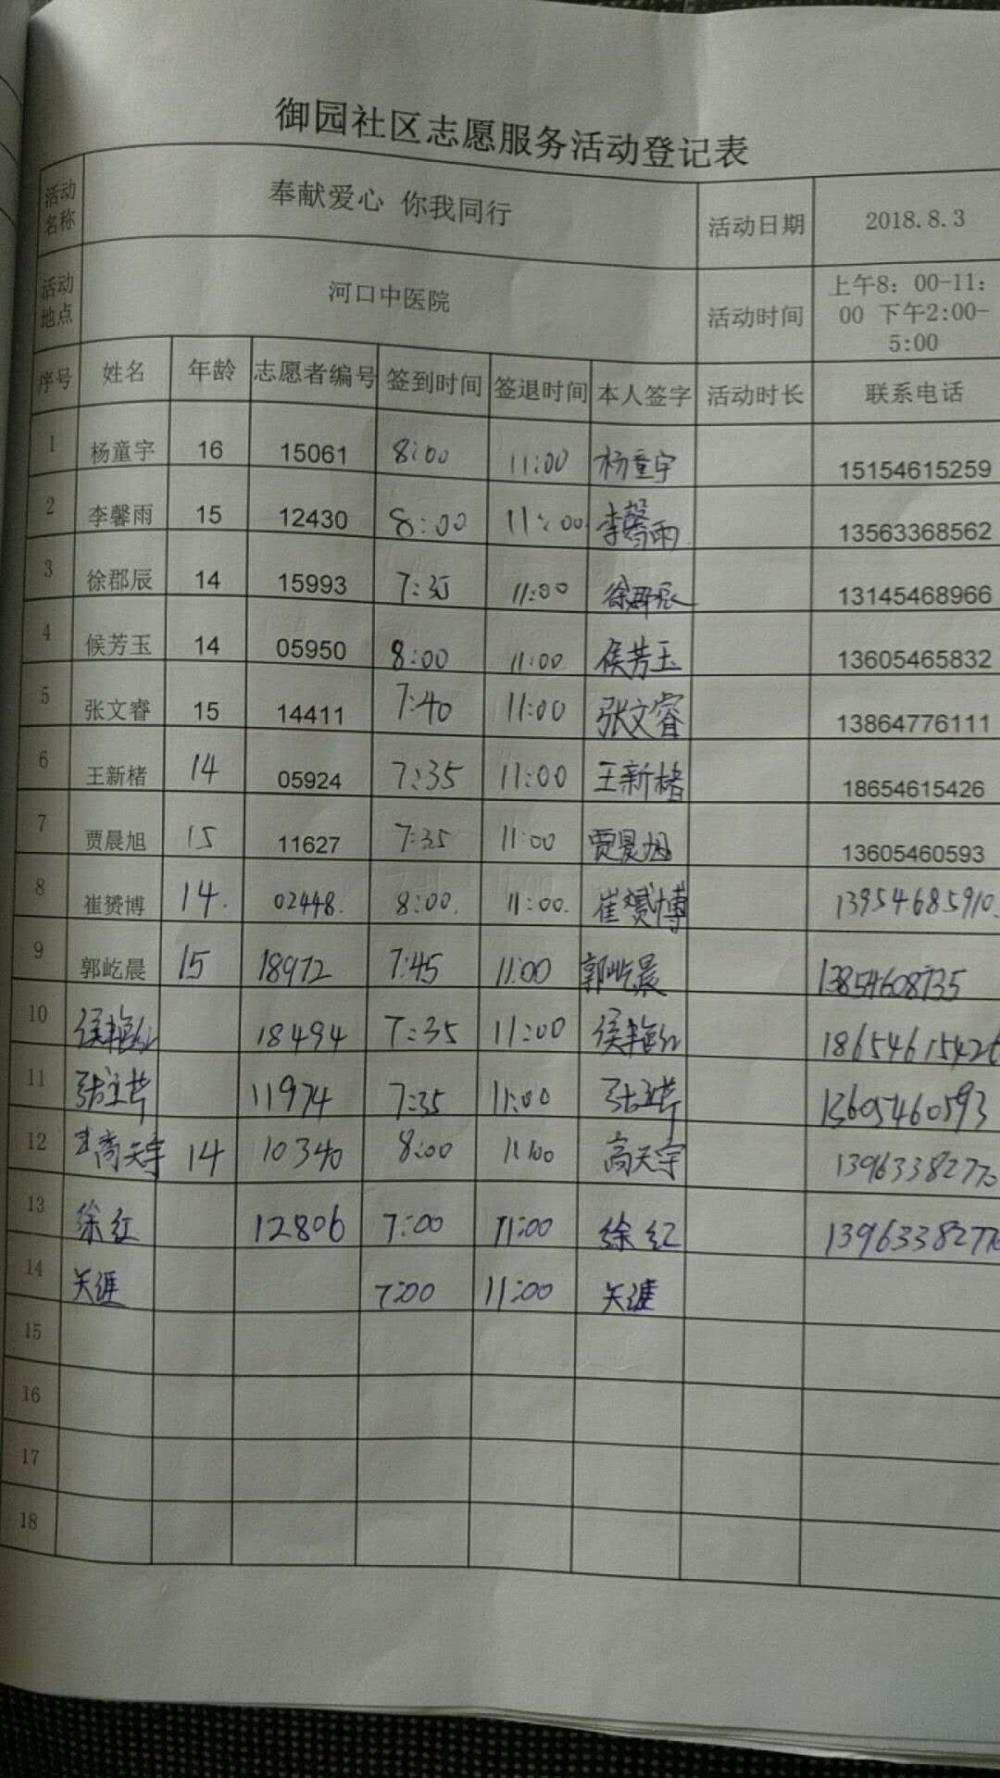 御园社区志愿服务活动登记表
活动名称 奉献爱心 你我同行 活动日期 2018.8.3
活动地点 河口中医院 活动时间 上午8：00-11：00 下午2:00-5:00
序号 姓名 年龄 志愿者编号 签到时间 签退时间 本人签字 活动时长 联系电话
1 杨童宇 16 15061 8:00 11:00 杨童宇 15154615259
2 李馨雨 15 12430 8:00 11:00 李馨雨 13563368562
3 徐郡辰 14 15993 7:35 11:00 徐郡辰 13145468966
4 候芳玉 14 05950 8:00 11:00 侯芳玉 13605465832
5 张文睿 15 14411 7:40 11:00 张文睿 13864776111
6 王新楮 14 05924 7:35 11:00 王新楮 18654615426
7 贾晨旭 15 11627 7:35 11:00 贾晨旭 13605460593
8 崔赟博 14. 02448. 8:00. 11:00. 崔赟博 13954685910.
9 郭屹晨 15 18972 7:45 11:00 郭屹晨 13854608735
10 侯艳红 18494 7:35 11:00 侯艳红 18654615426
11 11974 7:35 11:00 13605460593
12 高天宇 14 10340 8:00 11:00 高天宇 13963382770
13 徐红 12806 7:00 11:00 徐红 13963382770
14 7:00 11:00
15
16
17
18